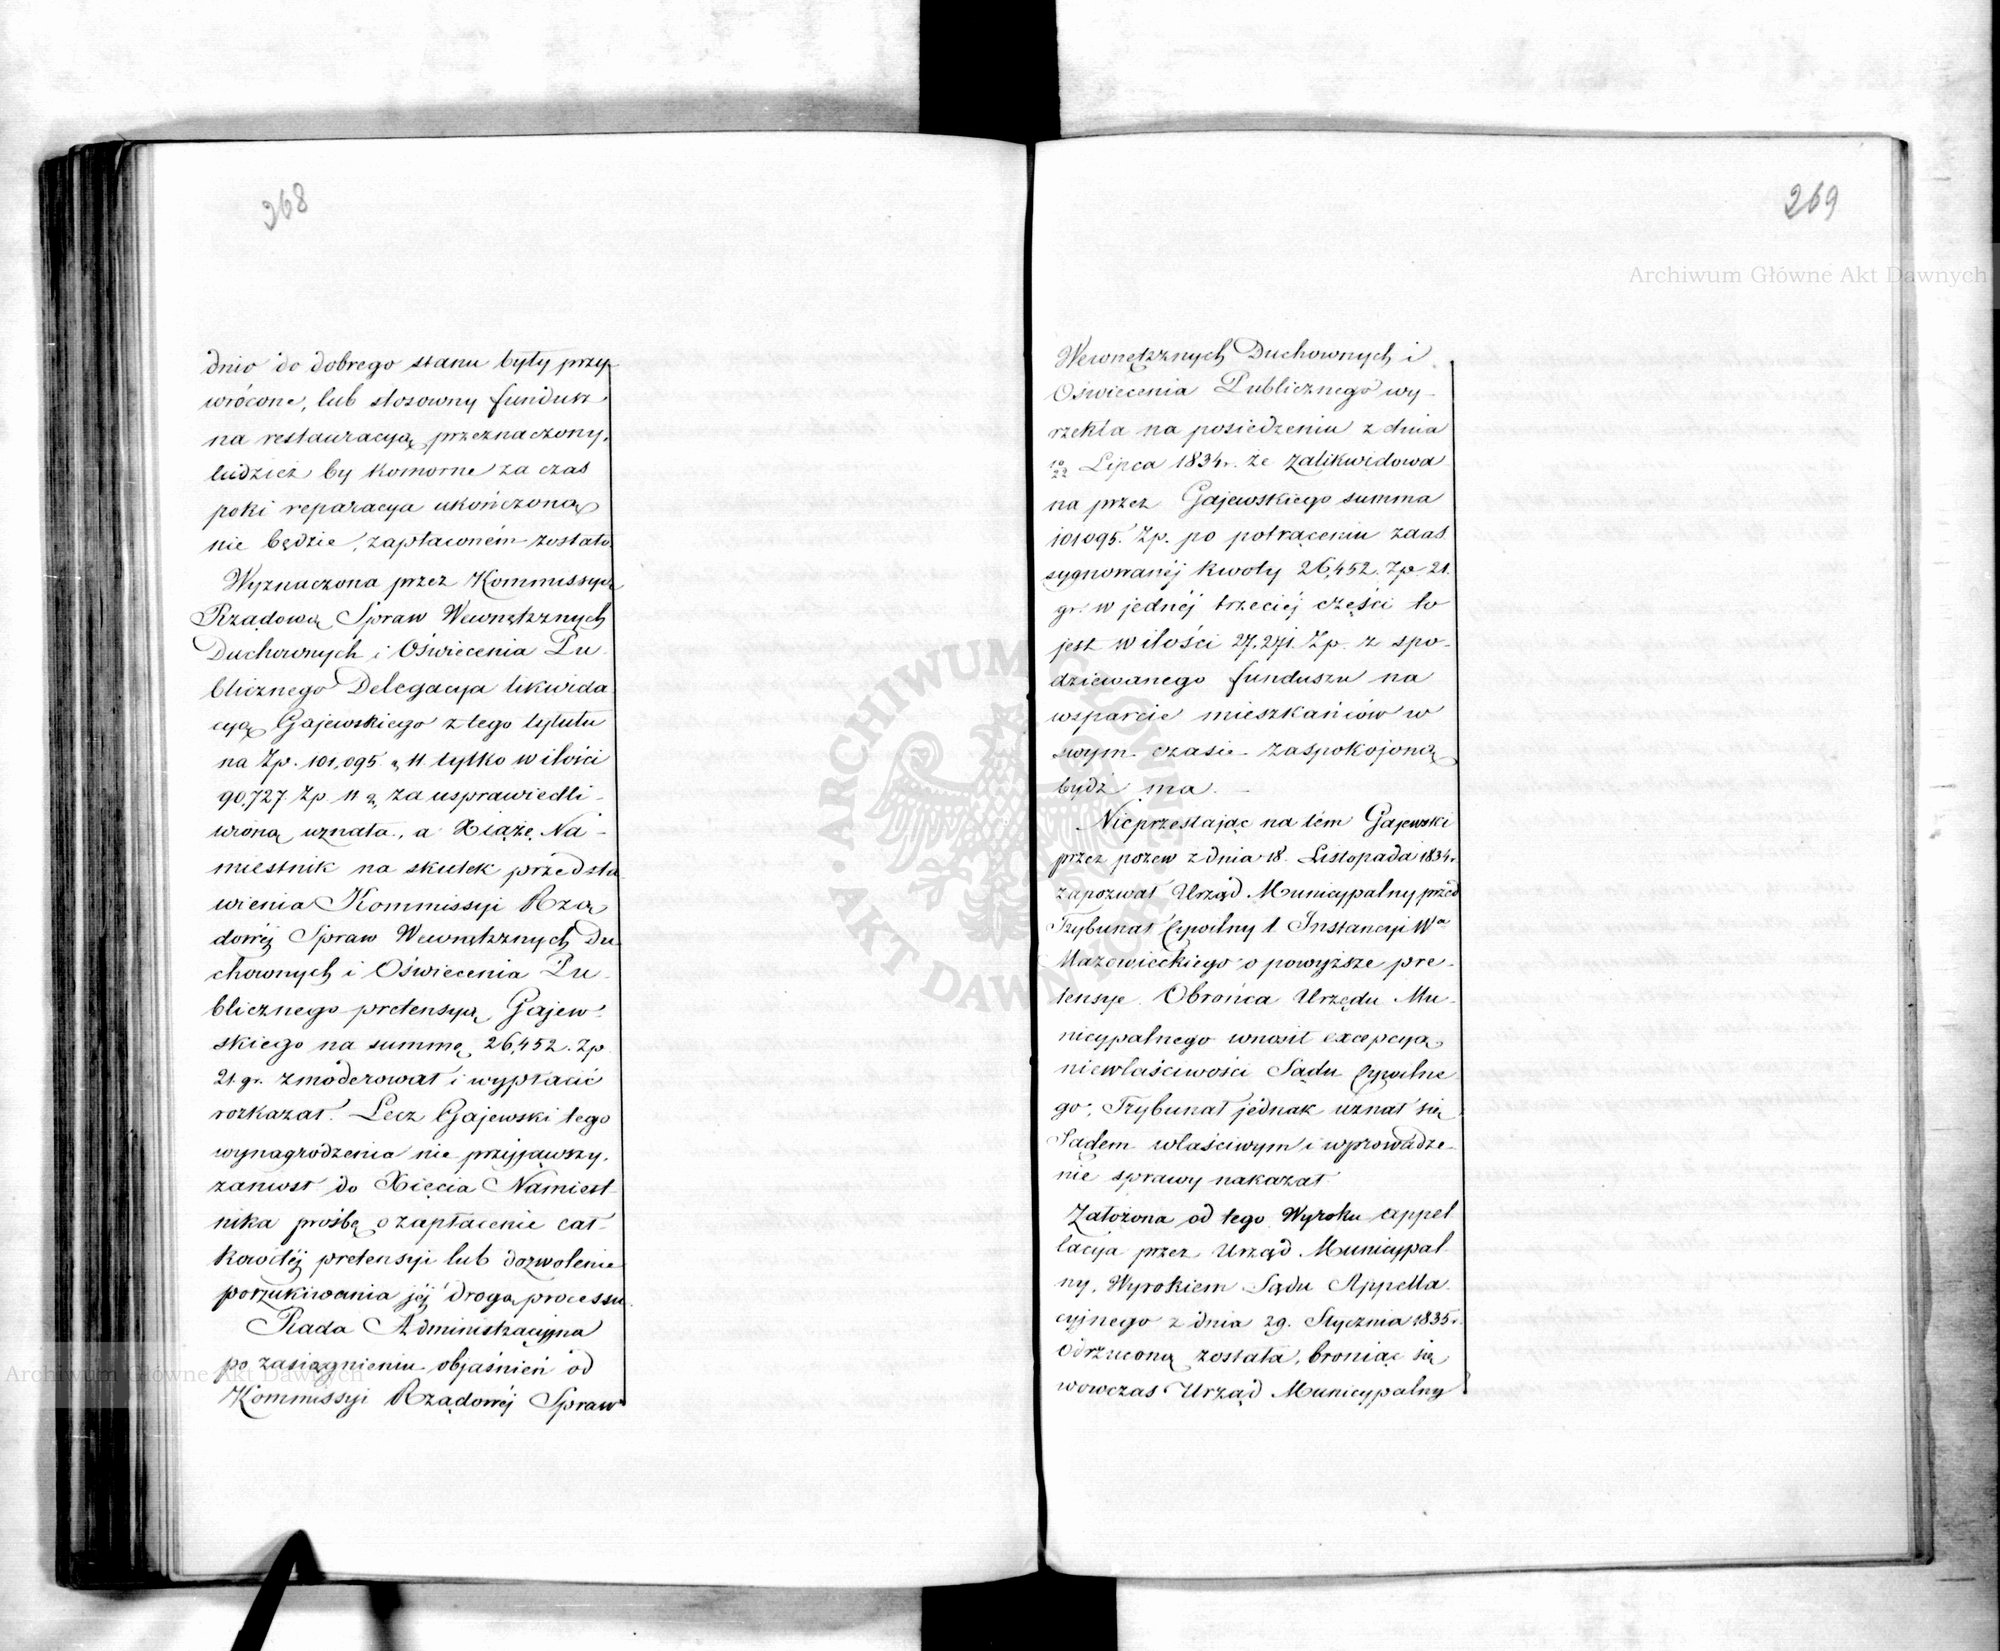 368
dnio do dobrego stanu były przy-
wrócone, lub stosowny fundusz
na restauracyą przeznaczony,
tudzież by komorne za czas
poki reparacya ukończoną
nie będzie, zapłaconém zostało.
Wyznaczona przez Kommissyą
Rządową Spraw Wewnętrznych
Duchownych i Oświecenia Pu-
blicznego Delegacya likwida
cyą Gajewskiego z tego tytułu
na Zp. 101,095 11 tylko w ilości
90,727 Zp. 11 za usprawiedli-
wioną uznała, a Xiąże Na-
miestnik na skutek przedsta
wienia Kommissyi Rzą
dowéj Spraw Wewnętrznych Du
chownych i Oświecenia Pu-
blicznego pretensyą Gajew-
skiego na summę 26,452. Zp.
21 gr. zmoderował i wypłacić
rozkazał. Lecz Gajewski tego
wynagrodzenia nie przyjąwszy,
zaniosł do Xięcia Namiest-
nika prośbę o zapłacenie cał-
kowitéj pretensyi lub dozwolenie
poszukiwania jéj drogą processu.
Rada Administracyjna
po zasiągnieniu objaśnień od
Kommissyi Rządowéj Spraw
269
Archiwum Główne Akt Dawnych
Wewnętrznych Duchownych i
Oświecenia Publicznego wy-
rzekła na posiedzeniu z dnia
10/22 Lipca 1834 r. że zalikwidowa
na przez Gajewskiego summa
101095. Zp. po potrąceniu zaas
sygnowanéj kwoty 26,452. Zp. 21.
gr. w jednéj trzeciéj części to
jest w ilości 27,271. Zp. z spo-
dziewanego funduszu na
wsparcie mieszkańców w
swym czasie zaspokojoną
bydź ma.
Nieprzestając na tém Gajewski
przez pozew z dnia 18. Listopada 1834 r.
zapozwał Urząd Municypalny przed
Trybunał Cywilny 1. Instancyi Wa
Mazowieckiego o powyższe pre-
tensye. Obrońca Urzędu Mu-
nicypalnego wnosił excepcyą
niewłaściwości Sądu Cywilne
go, Trybunał jednak uznał się
Sądem właściwym i wprowadze-
nie sprawy nakazał
Założona od tego Wyroku appel
lacya przez Urząd Municypal-
ny, Wyrokiem Sądu Appella
cyjnego z dnia 29. Stycznia 1835 r.
odrzuconą została, broniąc się
wowczas Urząd Municypalny
ARCHIWUM GŁÓWNE AKT DAWNYCH
Archiwum Główne Akt Dawnych